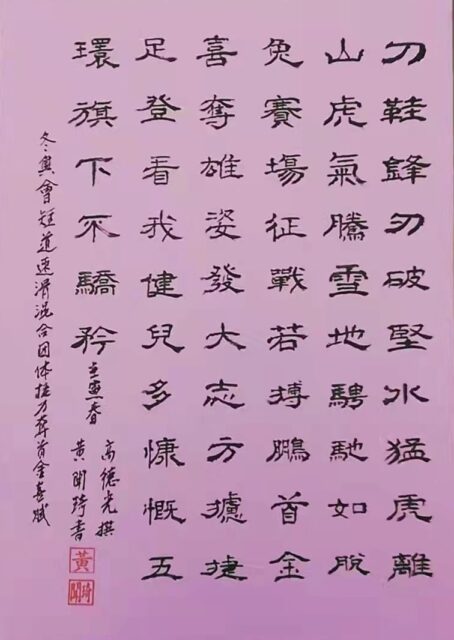 刀鞋鋒刃破堅氷猛虎離
山虎氣騰雪地騁馳如脫
兔賽場征戰若搏鵬首金
喜奪雄姿發大志方攄捷
足登看我健兒多慷慨五
環旗下不驕矜
壬寅春
高德光撰
黃開琦書
冬奥會短道速滑混合团体接力奪首金喜賦
黃